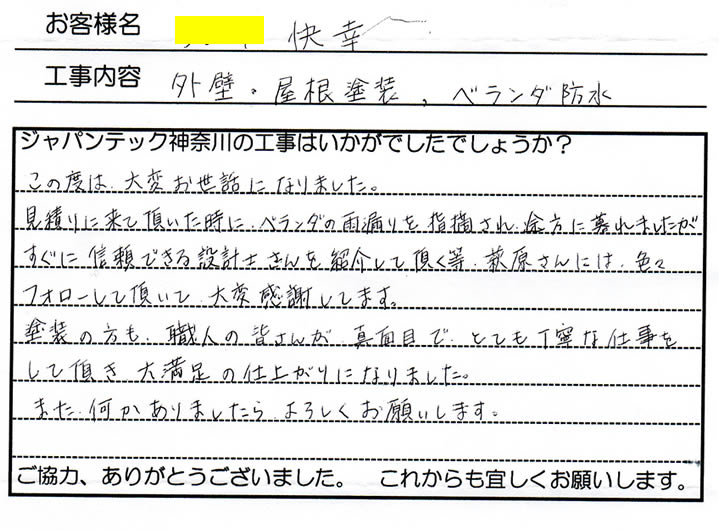 お客様名 快幸
工事内容 外壁・屋根塗装、ベランダ防水
ジャパンテック神奈川の工事はいかがでしたでしょうか？
この度は、大変お世話になりました。
見積りに来て頂いた時に、ベランダの雨漏りを指摘され、途方に暮れましたが
すぐに信頼できる設計士さんを紹介して頂く等、萩原さんには、色々
フォローして頂いて、大変感謝してます。
塗装の方も、職人の皆さんが、真面目で、とても丁寧な仕事を
して頂き 大満足の仕上がりになりました。
また、何かありましたら、よろしくお願いします。
ご協力、ありがとうございました。 これからも宜しくお願いします。